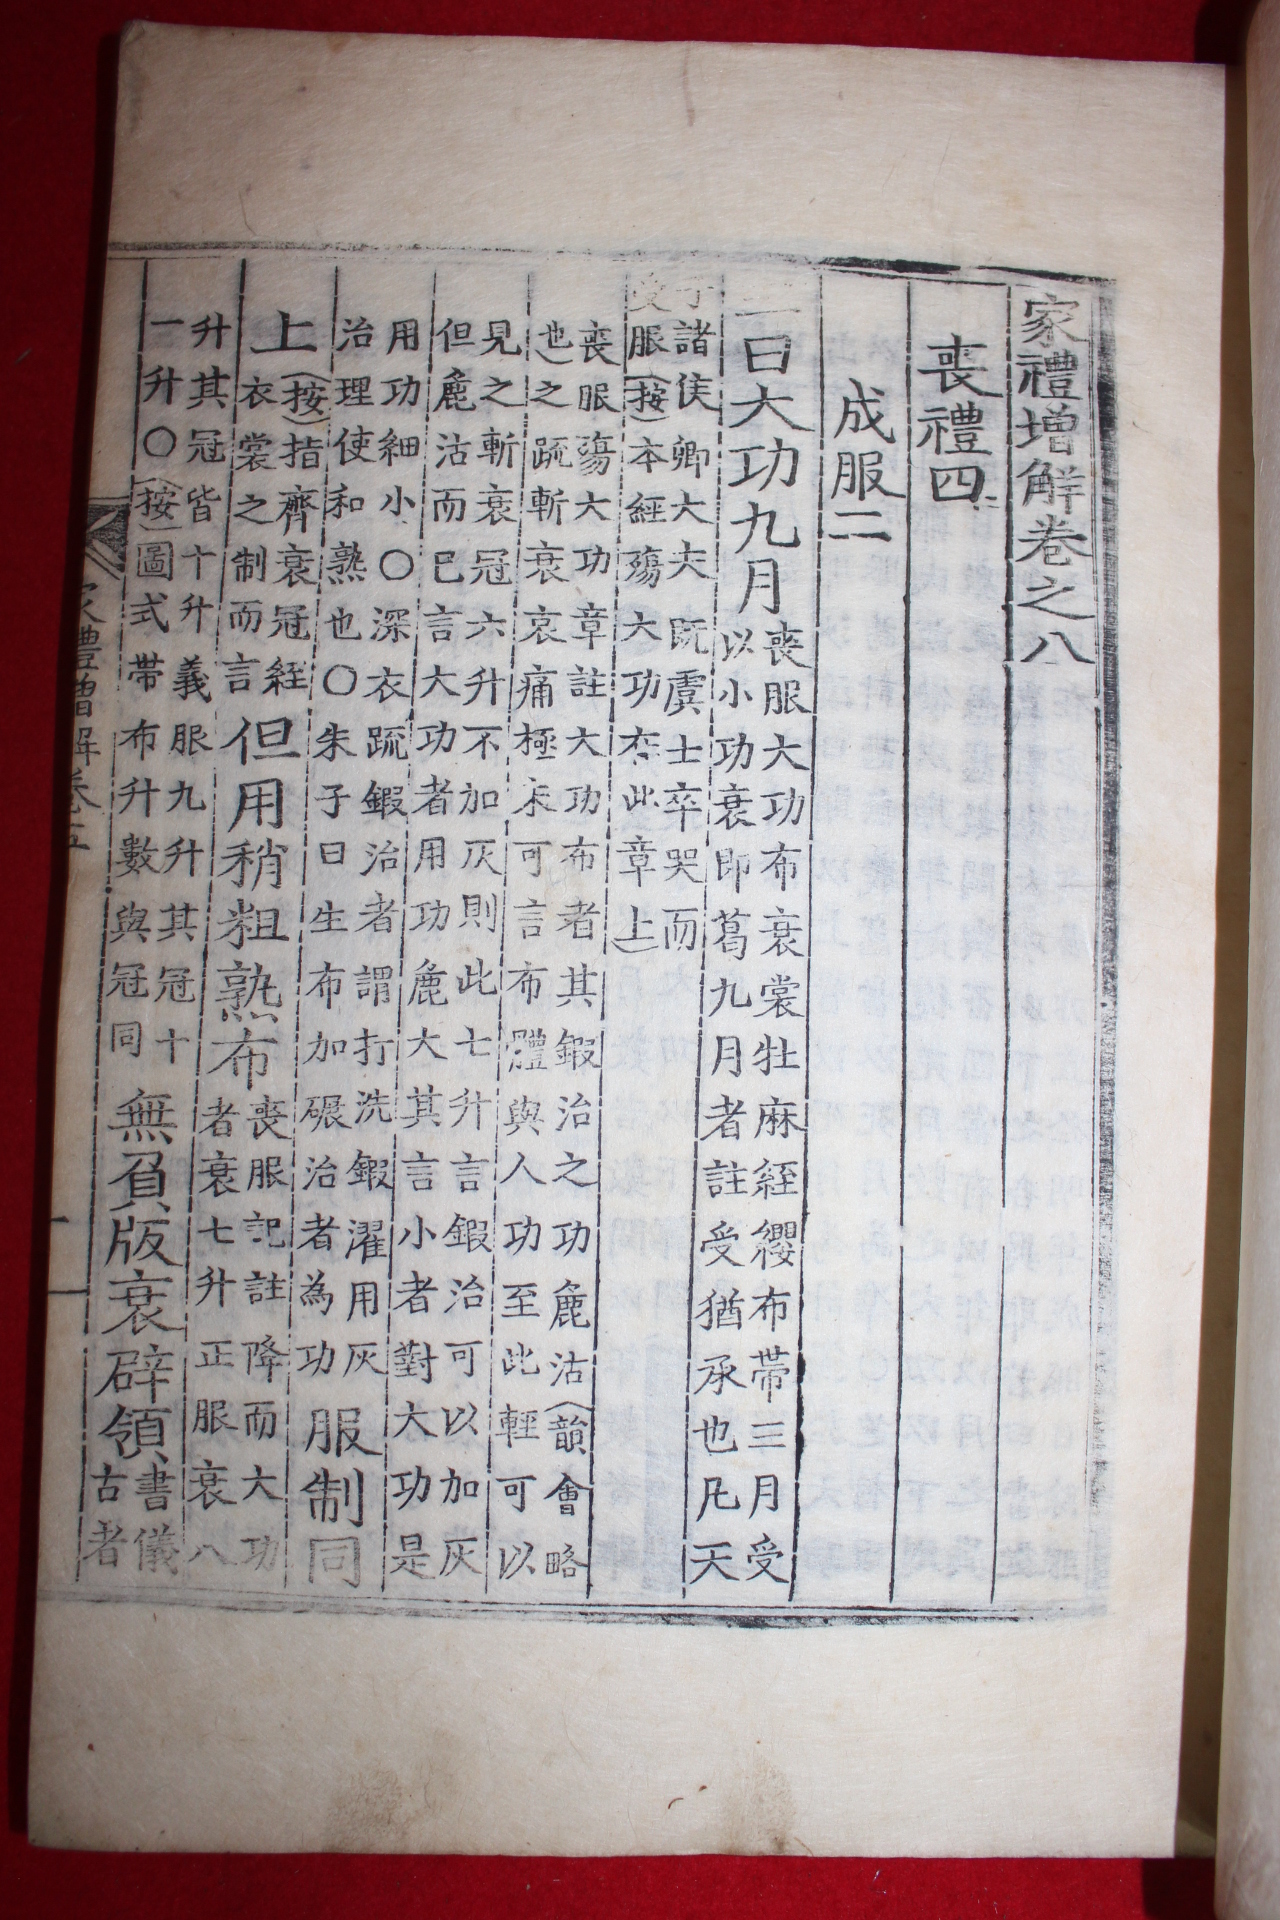 家禮增解卷之八
喪禮四
成服二
三曰大功九月喪服大功布衰裳牡麻絰纓布帶三月受
以小功衰即葛九月者註受猶承也凡天
子諸侯卿大夫既虞士卒哭而
受服(按)本經殤大功在此章上
喪服殤大功章註大功布者其鍜治之功麁沽(韻會略
也)之疏斬衰哀痛極未可言布體與人功至此輕可以
見之斬衰冠六升不加灰則此七升言鍜治可以加灰
但麁沽而已言大功者用功麁大其言小者對大功是
用功細小〇深衣疏鍜治者謂打洗鍜濯用灰
治理使和熟也〇朱子曰生布加碾治者為功服制同
上(按)指齊衰冠絰
衣裳之制而言但用稍粗熟布喪服記註降而大功
者衰七升正服衰八
升其冠皆十升義服九升其冠十
一升〇(按)圖式帶布升數與冠同無負版衰辟領書儀
古者
家禮增解卷五
一